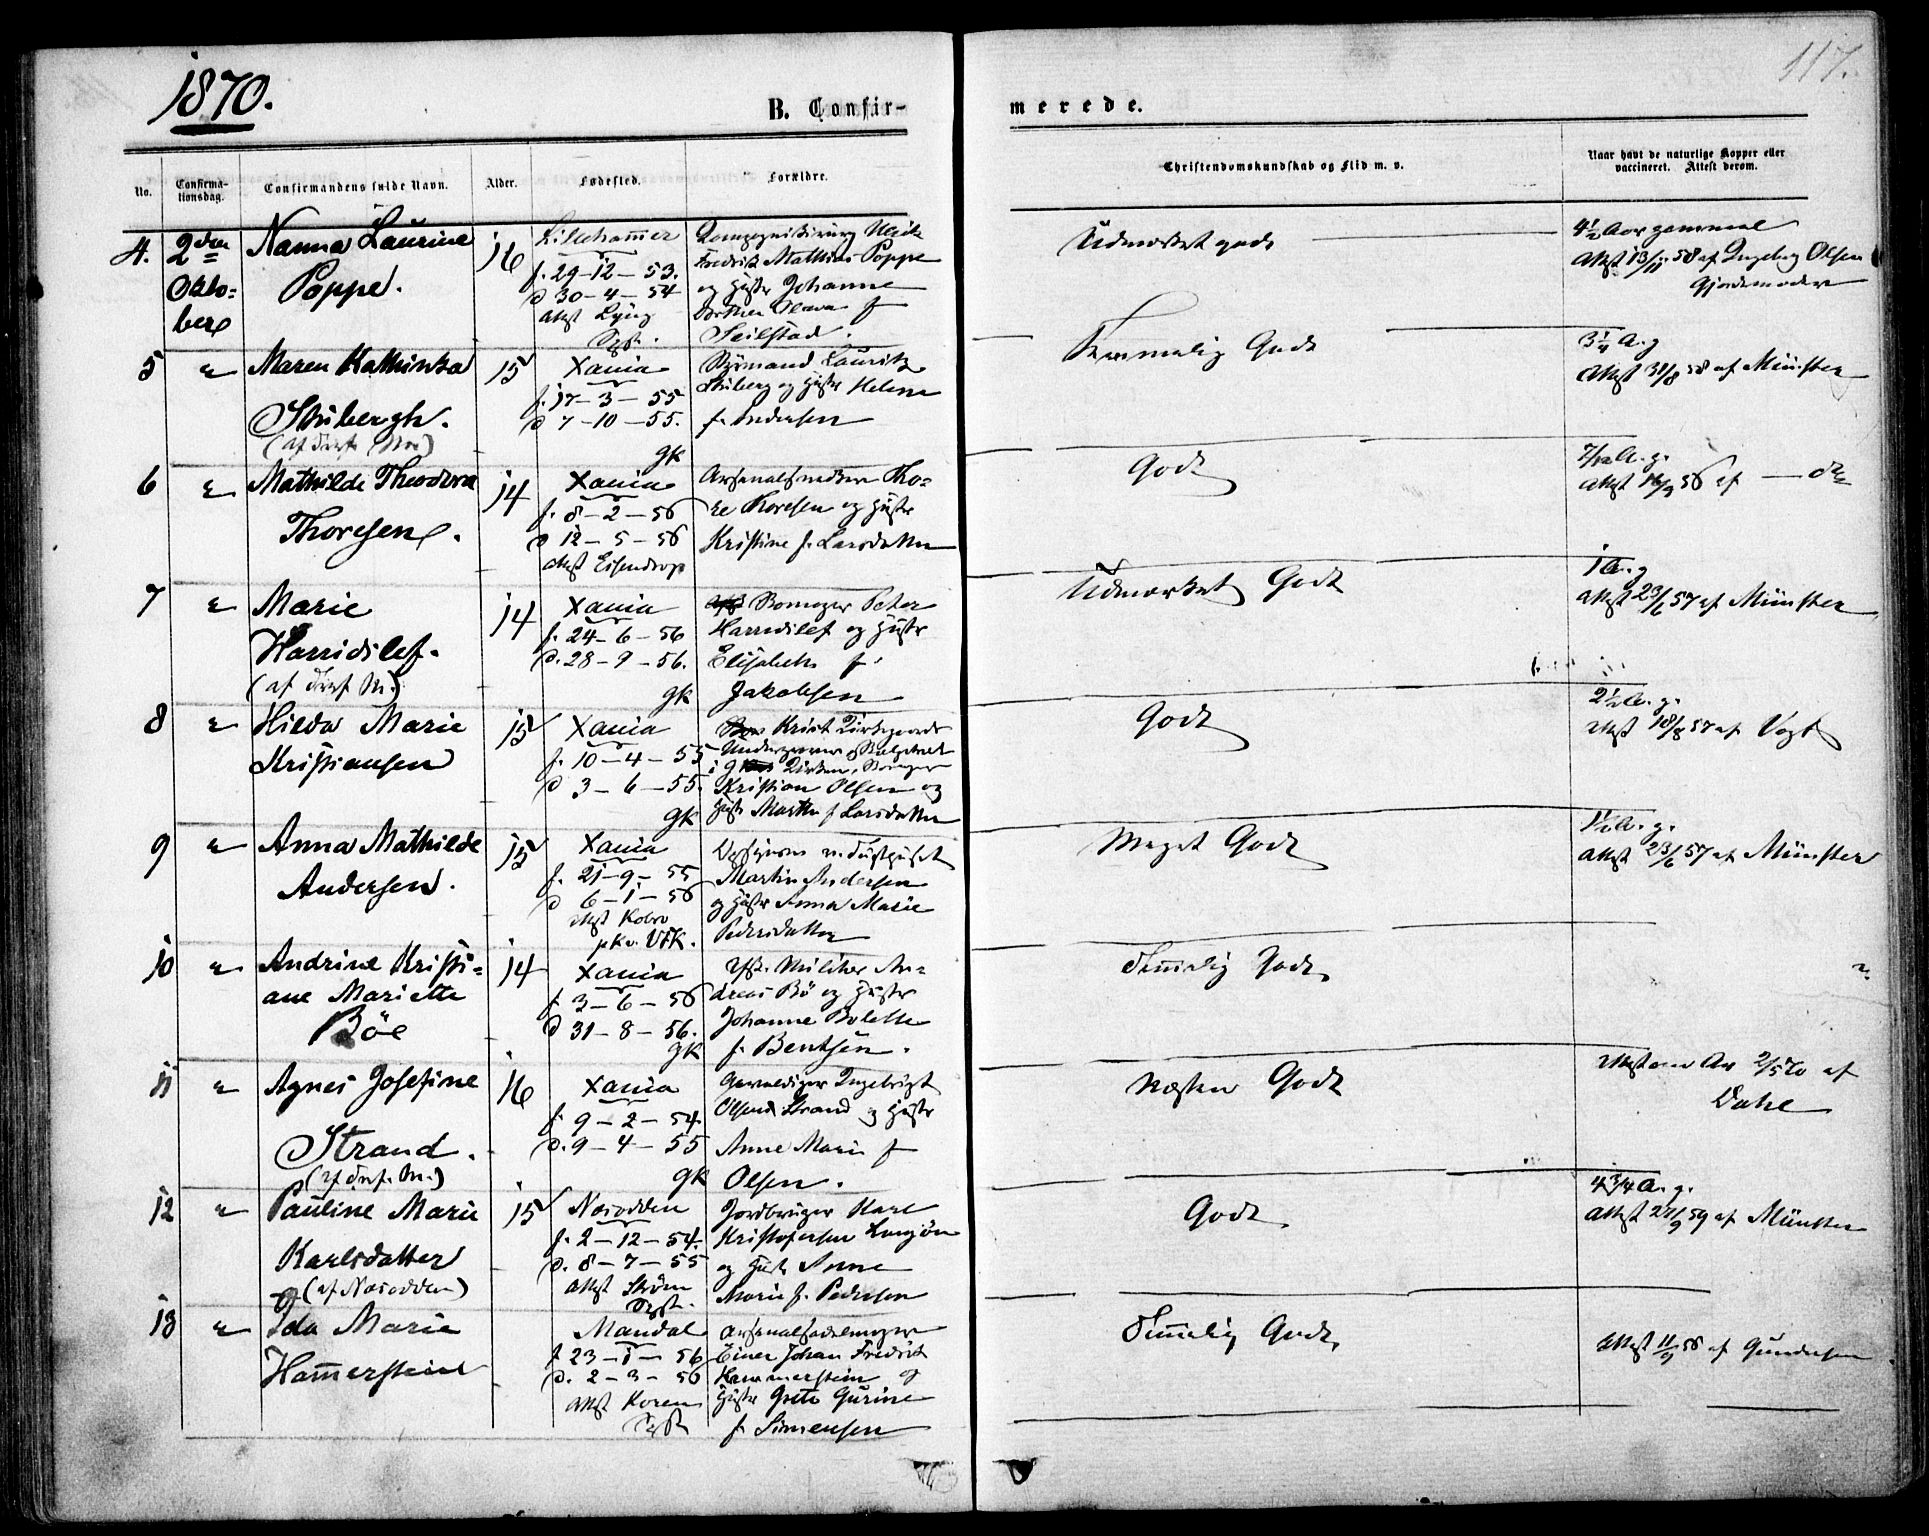 1870.
117.
B. Confir-
merede.
No.
Confirma-
tionsdag.
Confirmandens fulde Navn.
Alder.
Fødested.
Forældre.
Christendomskundskab og Flid m. v.
Naar havt de naturlige Kopper eller
vaccineret. Attest derom.
4.
2den
Okto-
ber
Nanna Laurine
Poppe.
16
Lillehammer
f. 29-12-53.
d 30-4-54
Attst Lyng
Fredrik Mathias Poppe
og Hustr Johanne
f
Seilstad.
Udmærket godt
4½ Aar gammel
Attst 13/11 58 af Ingebog Olsen
Gjordemoder
5
"
Maren Kathinka
Stubergh.
15
Xania
f. 17-3-55
d 7-10-55.
gk
Styrmand Lauritz
Stuberg og Hustr Helene
f. Andersen
Temmelig Godt
3¼ A. g
Attst 31/8 58 af Münster
6
"
Mathilde Theodora
Thoresen.
14
Xania
f. 8-2-56
d 12-5-56
Attst Eisendrup
Arsenalsnedker To-
re Thoresen og Hustr
Kristine f. Larsdatter
Godt
7/12 A. g.
Attst 16/9 56 af — do
7
"
Marie
Harridslef.
(af Dvef M.)
14
Xania
f. 24-6-56
d. 28-9-56.
gk
Skomager Peter
Harridslef og Hustr
Elisabeth f.
Jakobsen
Udmærket Godt
1 A. g
Attst 23/6 57 af Münster
8
"
Hilda Marie
Kristiansen
15
Xania
f. 10-4-55
d 3-6-55.
gk
Kristian Olsen og
Hustr Marthe f Larsdatter
Godt
2½ A. g.
Attst 18/8 57 af Vogt
9
"
Anna Mathilde
Andersen.
15
Xania
f. 21-9-55
d 6-1-56
Attst Kobro
p Kv. VFK.
Opsynsm v. Tugthuset
Martin Andersen
og Hustr Anna Marie
Pedersdatter
Meget Godt
1½ A. g.
Attst 23/6 57 af Münster
10
"
Andrine Kristi=
ane Mariette
Böe
14
Xania
f 3-6-56
d 31-8-56.
gk
An-
dreas Bö og Hustr
Johanne Bolette
f. Bentsen.
Temelig Godt
?
11
"
Agnes Josefine
Strand.
16
Xania
f. 9-2-54.
d. 9-4-55
gk
Gevaldiger Ingebrigt
Olsen Strand og Hustr
Anne Marie f
Olsen.
Næsten Godt
Attst om Ar 2/5 70 af
Dahl
12
"
Pauline Marie
Karlsdatter
(af Næsodden)
15
Næsodden
f. 2-12-54.
d. 8-7-55
Attst Ström
Jordbruger Karl
Kristofersen
og Hustr Anne
Marie f. Pedersen
Godt
4¾ A. g.
Attst 27/9 59 af Münster
13
"
Ida Marie
Hammerstein
Mandal
f 23-1-56
d. 2-3-56
Attst Koren
Arsenalsadelmager
Einer Johan Fredrik
Hammerstein og
Hustr Grete Gurine
f. Simensen
Temelig Godt
Attst 11/9 56 af Gundersen